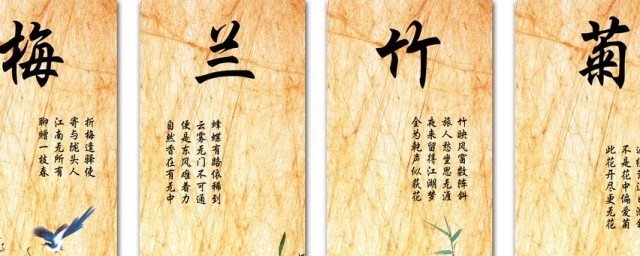 梅
折梅逢驿使
寄与陇头人
江南无所有
聊赠一枝春
兰
蜂蝶有路依稀到
云雾无门不可通
便是东风难着力
自然香在有无中
竹
竹映风窗数阵斜
旅人愁坐思无涯
夜来留得江湖梦
全为乾声似荻花
菊
不是花中偏爱菊
此花开尽更无花